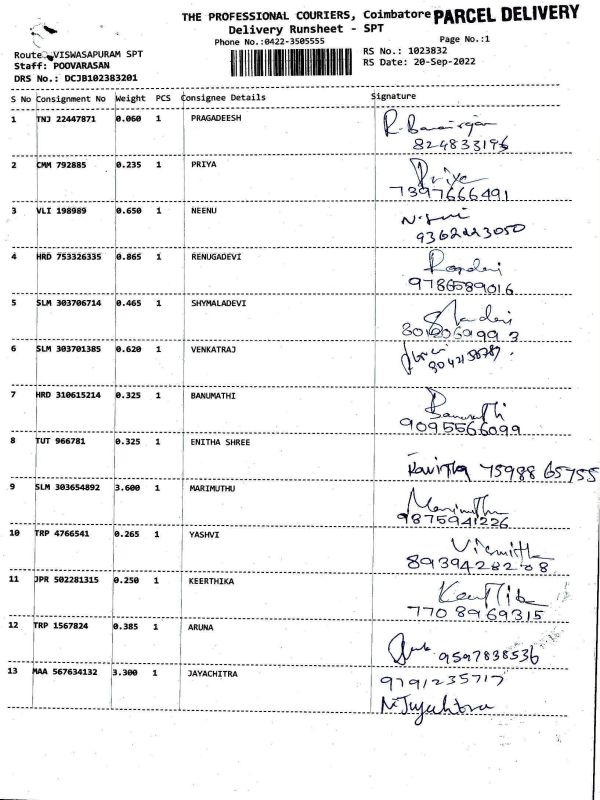 THE PROFESSIONAL COURIERS, Coimbatore PARCEL DELIVERY
Delivery Runsheet - SPT
Phone No.:0422-3505555
Page No.:1
Route: VISWASAPURAM SPT
Staff: POOVARASAN
DRS No.: DCJB102383201
RS No.: 1023832
RS Date: 20-Sep-2022
S No Consignment No Weight PCS Consignee Details Signature
1 TNJ 22447871 0.060 1 PRAGADEESH
824833196
2 CMM 792885 0.235 1 PRIYA Priya
7397666491
3 VLI 198989 0.650 1 NEENU
9362443050
4 HRD 753326335 0.865 1 RENUGADEVI
9786589016
5 SLM 303706714 0.465 1 SHYMALADEVI
6 SLM 303701385 0.620 1 VENKATRAJ
7 HRD 310615214 0.325 1 BANUMATHI Banumathi
9095566099
8 TUT 966781 0.325 1 ENITHA SHREE
75988 65755
9 SLM 303654892 3.600 1 MARIMUTHU Marimuthu
9875941226
10 TRP 4766541 0.265 1 YASHVI
8939428208
11 JPR 502281315 0.250 1 KEERTHIKA
7708969315
12 TRP 1567824 0.385 1 ARUNA
9597838536
13 MAA 567634132 3.300 1 JAYACHITRA 9791235717
N. Jayachitra